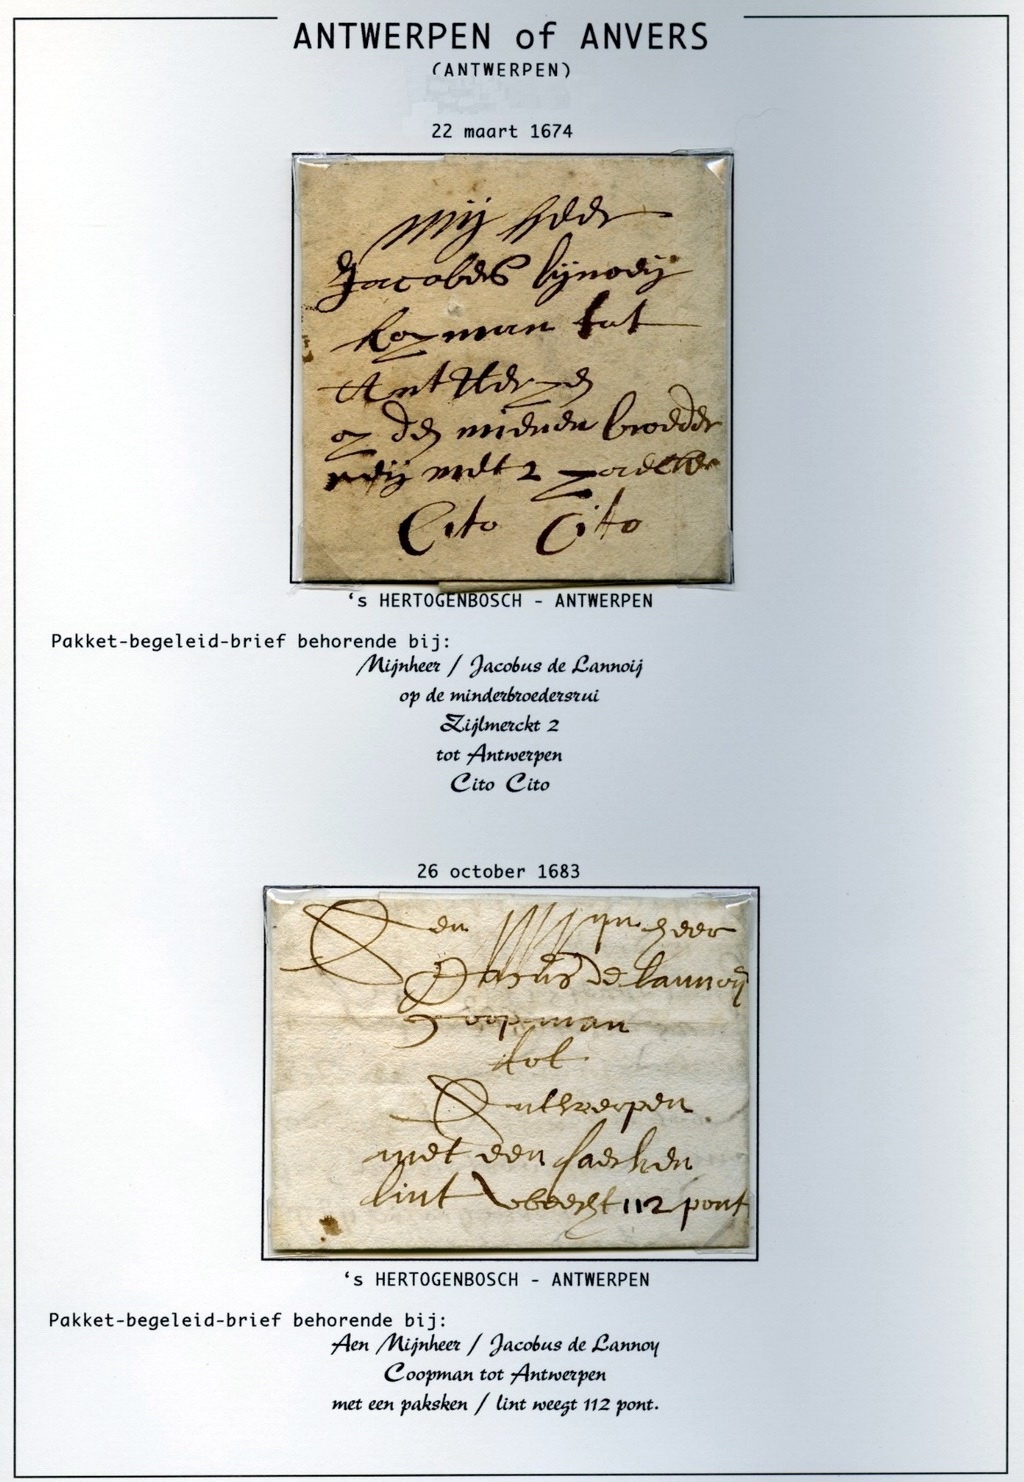 ANTWERPEN of ANVERS
(ANTWERPEN)
22 maart 1674
Mij heer
Jacobus
tot
Antwerpen
op de broeder
reij met 2
Cito Cito
‘s HERTOGENBOSCH - ANTWERPEN
Pakket-begeleid-brief behorende bij:
Mijnheer / Jacobus de Lannoij
op de minderbroedersrui
Zijlmerckt 2
tot Antwerpen
Cito Cito
26 october 1683
Aen Mijn heer
de Lannoij
Coopman
tot
Antwerpen
met een
lint 112 pont
‘s HERTOGENBOSCH - ANTWERPEN
Pakket-begeleid-brief behorende bij:
Aen Mijnheer / Jacobus de Lannoy
Coopman tot Antwerpen
met een paksken / lint weegt 112 pont.